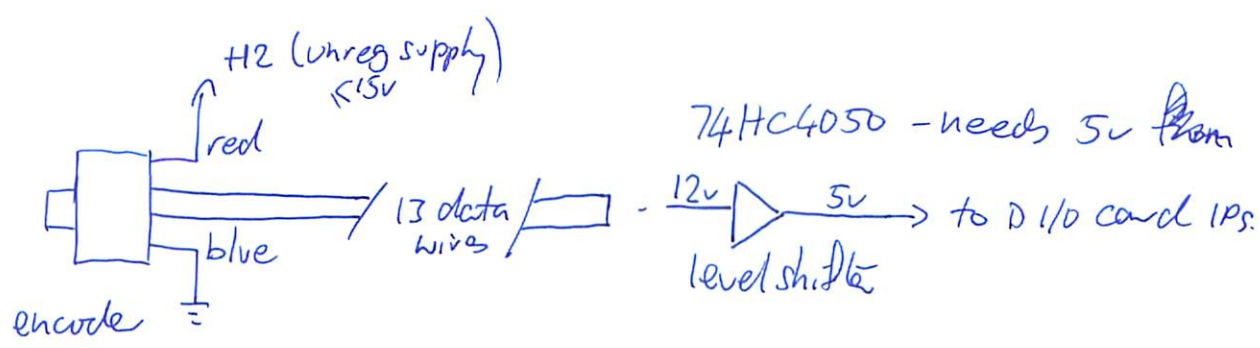 H2 (unreg supply)
<15v
red
74HC4050 - needs 5v
13 data
wires
12v
5v
to D I/O card IPs.
blue
level shifter
encode